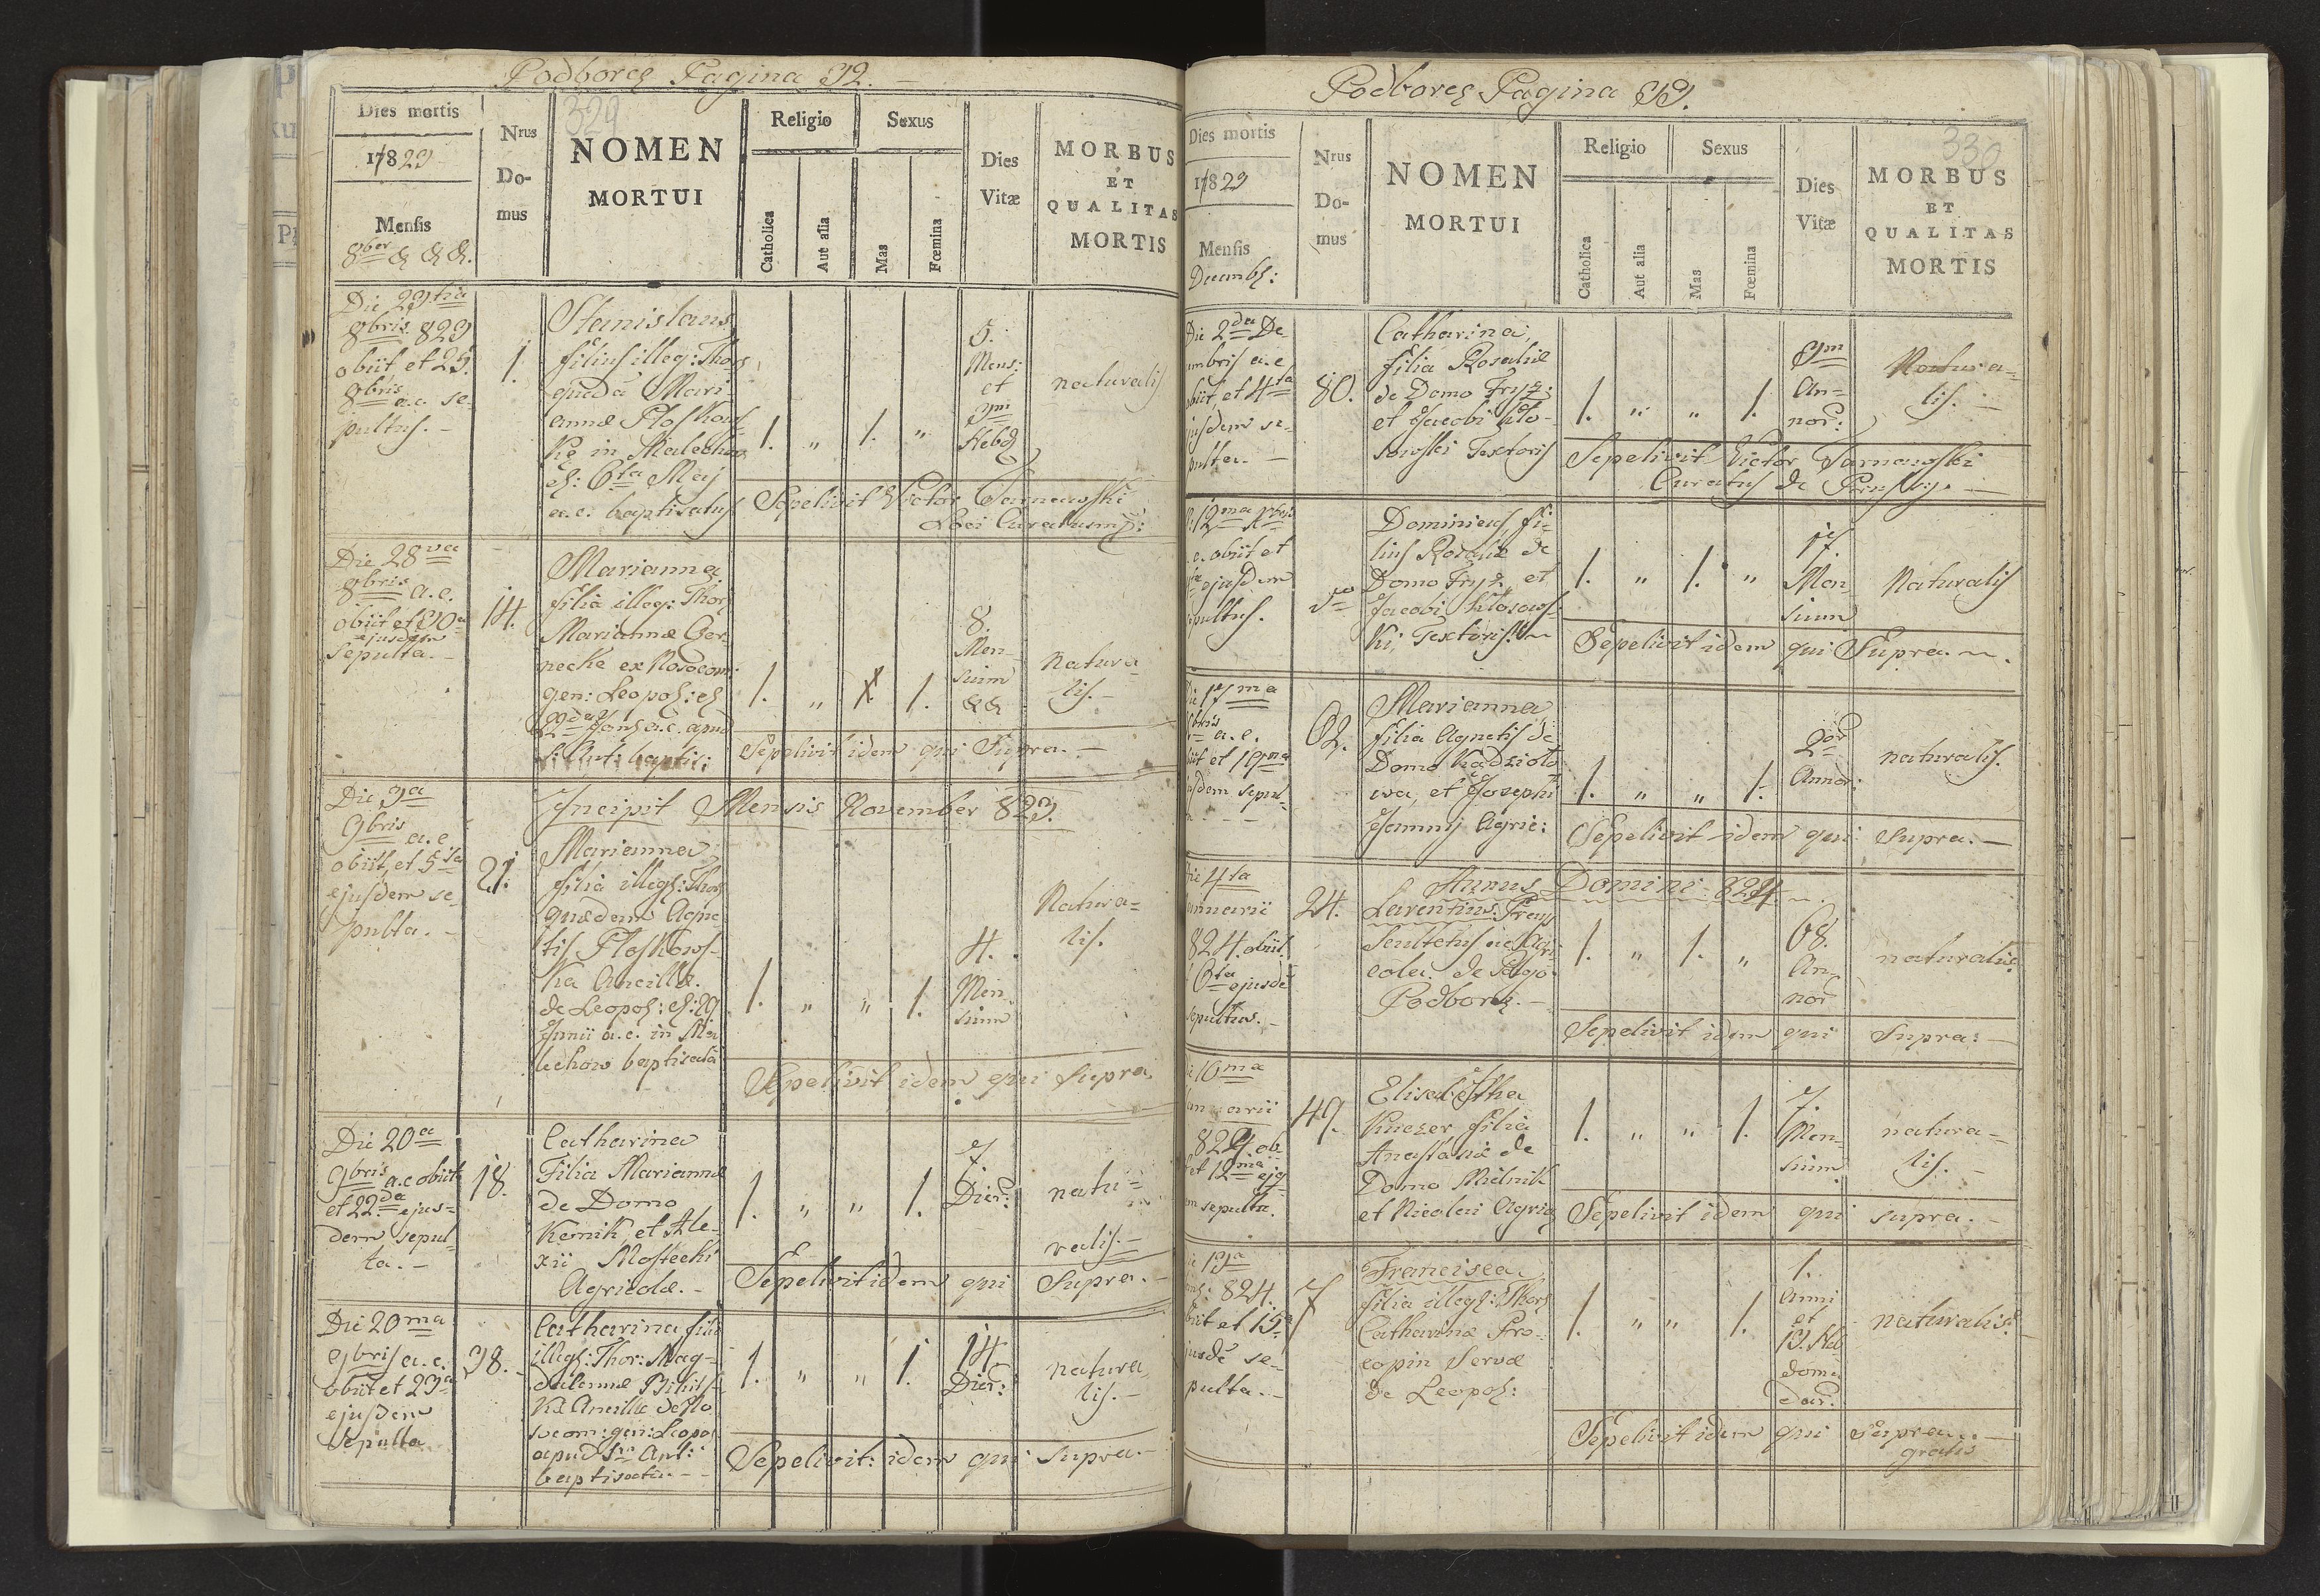 Podborcz Pagina 32. –
329
Dies mortis
1823
Mensis
8ber & & &.
Nrus
Do-
mus
NOMEN
MORTUI
Religio
Catholica
Aut alia
Sexus
Mas
Fœmina
Dies
Vitæ
MORBUS
ET
QUALITAS
MORTIS
Die 23tia
8bris 823
obiit, et 25.
8bris a.c. se-
pultus. –
1.
Stanislaus
filius illeg: Thor
quædã Mari-
annæ
in Malechow
6ta Maj
a.c. baptisatus
1. " 1. "
5.
Mens:
et
3m
Hebd
naturalis
Sepelivit Victor Tarnawski
Loci Curatus mp:
Die 28va
8bris a.c.
obiit et 30a
ejusdem
sepulta. –
14.
Marianna
filia illeg: Thor
Mariannæ Czer-
necke ex Nosocom:
gen: Leopol:
a.c. apud
S: Ant: baptis:
1. " 1.
8.
Men-
sium
&&
Natura
lis. –
Sepelivit idem qui Supra. –
Incipit Mensis November 823.
Die 3a
9bris a.c.
obiit, et 5ta
ejusdem se-
pulta. –
21.
Marianna
filia illeg: Thor
quædem Agne
tis Ploskows-
ka Ancillæ.
de Leopol: 29
Junii a.c. in Ma
lechow baptisata
1. " " 1.
4.
Men
sium
Natura-
lis.
Sepelivit idem qui supra
Die 20a
9bris a.c. obiit
et 22da ejus-
dem sepul-
ta. –
18.
Catharina
Filia Mariannæ
de Domo
Kemik, et Ale-
xii Mostecki
Agricolæ. –
1. " " 1.
7
Dier:
natu-
ralis. –
Sepelivit idem qui Supra. –
Die 20ma
9bris a.c.
obiit et 23a
ejusdem
sepulta
38.
Catharina filia
illeg: Thor: Mag-
dalennæ
Ancillæ de No
socom: gen: Leopol
apud Sm Ant:
baptisata –
1. " " 1.
14
Dier:
natura
lis. –
Sepelivit: idem qui supra –
Podborcz Pagina 33.
330
Dies mortis
1823
Mensis
Decembr:
Nrus
Do-
mus
NOMEN
MORTUI
Religio
Catholica
Aut alia
Sexus
Mas
Fœmina
Dies
Vitæ
MORBUS
ET
QUALITAS
MORTIS
Die 2da De
cembris a.c.
obiit, et 4ta
ejusdem se-
pulta. –
80.
Catharina
filia Rosaliæ
de Domo Fryz:
et Jacobi Kło-
sowski Textoris
1. " " 1.
3m
An-
nor:
Natura-
lis. –
Sepelivit Victor Tarnawski
Curatus de –
12ma Xbris
a.c. obiit et
ejusdem
sepultus.
Dominicus, fi-
lius Rosaliæ de
Domo Fryz, et
Jacobi Kłosows-
ki, Textoris.
1. " 1. "
17.
Men-
sium
Naturalis
Sepelivit idem qui Supra.
Die 17ma
Xbris a.c.
obiit et 19ma
ejusdem sepul-
62.
Marianna
filia Agnetis de
Domo Kadzioło
wa, et Josephi
Agric:
1. " " 1.
2or
Annor:
naturalis.
Sepelivit idem qui supra. –
Annus Domini 824
Die 4ta
Januarii
824. obiit
6ta ejusdẽ
sepultus. –
24.
Laurentius
Scultetus ac Agri
cola de Pago
Podborcz. –
1. " 1. "
68.
An-
nor
naturalis.
Sepelivit idem qui Supra: –
10ma
Januarii
824. ob-
et 12ma ejq
em sepulta.
49.
Elisabetha
filia
Anastasiæ de
Domo Mielnik
et Nicolai Agric
1. " " 1.
7.
Men-
sium
natura-
lis. –
Sepelivit idem qui supra. –
13a
824.
obiit et 15a
ejusdẽ se-
pulta. –
7
Francisca
filia illeg: Thor
Catharinæ Pro-
copin Servæ
de Leopol:
1. " " 1.
1.
Anni
et
13. He
doma
dar:
naturalis.
Sepelivit idem qui supra. –
gratis